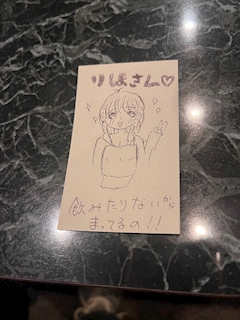 りほさん♡
飲みたりないから
まってるの!!